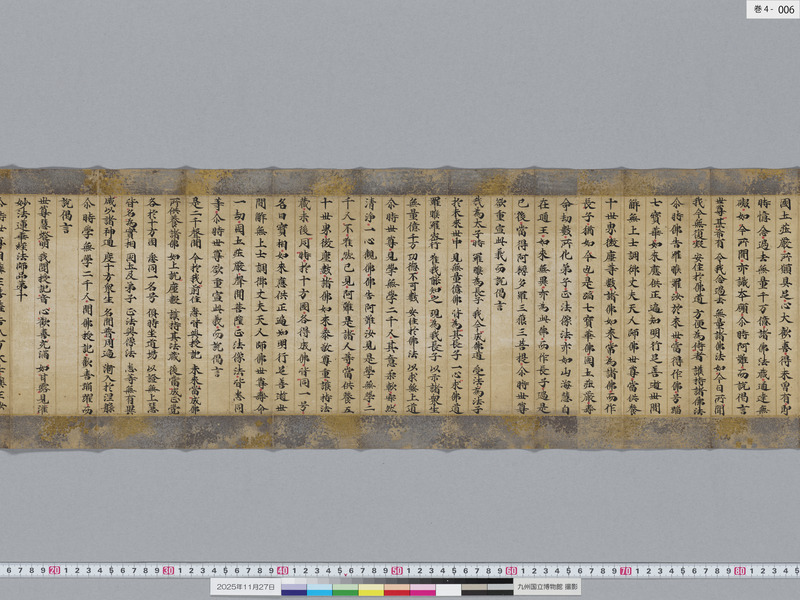 巻4- 006
國土莊嚴所願具足心大歡喜得未曾有即
時憶念過去無量千万億諸佛法藏通達無
礙如今所聞亦識本願尒時阿難而說偈言
世尊甚希有 令我念過去 無量諸佛法 如今日所聞
我今無復疑 安住於佛道 方便為侍者 護持諸佛法
尒時佛告羅睺羅汝於來世當得作佛号蹈
七寶華如來應供正遍知明行足善逝世間
解無上士調御丈夫天人師佛世尊當供養
十世界微塵等數諸佛如來常為諸佛而作
長子猶如今也是蹈七寶華佛國土莊嚴壽
命劫數所化弟子正法像法亦如山海慧自
在通王如來無異亦為此佛而作長子過是
已後當得阿耨多羅三藐三菩提尒時世尊
欲重宣此義而說偈言
我為太子時 羅睺為長子 我今成佛道 受法為法子
於未來世中 見無量億佛 皆為其長子 一心求佛道
羅睺羅密行 唯我能知之 現為我長子 以示諸眾生
無量億千万 功德不可數 安住於佛法 以求無上道
尒時世尊見學無學二千人其意柔軟寂然
清淨一心觀佛佛告阿難汝見是學無學二
千人不唯然已見阿難是諸人等當供養五
十世界微塵數諸佛如來恭敬尊重護持法
藏末後同時於十方國各得成佛皆同一号
名曰寶相如來應供正遍知明行足善逝世
間解無上士調御丈夫天人師佛世尊壽命
一劫國土莊嚴聲聞菩薩正法像法皆悉同
等尒時世尊欲重宣此義而說偈言
是二千聲聞 今於我前住 悉皆與授記 未來當成佛
所供養諸佛 如上說塵數 護持其法藏 後當成正覺
各於十方國 悉同一名号 俱時坐道場 以證無上慧
皆名為寶相 國土及弟子 正法與像法 悉等無有異
咸以諸神通 度十方眾生 名聞普周遍 漸入於涅槃
尒時學無學二千人聞佛授記歡喜踊躍而
說偈言
世尊慧燈明 我聞授記音 心歡喜充滿 如甘露見灌
妙法蓮華經法師品第十
2025年11月27日
九州国立博物館 撮影